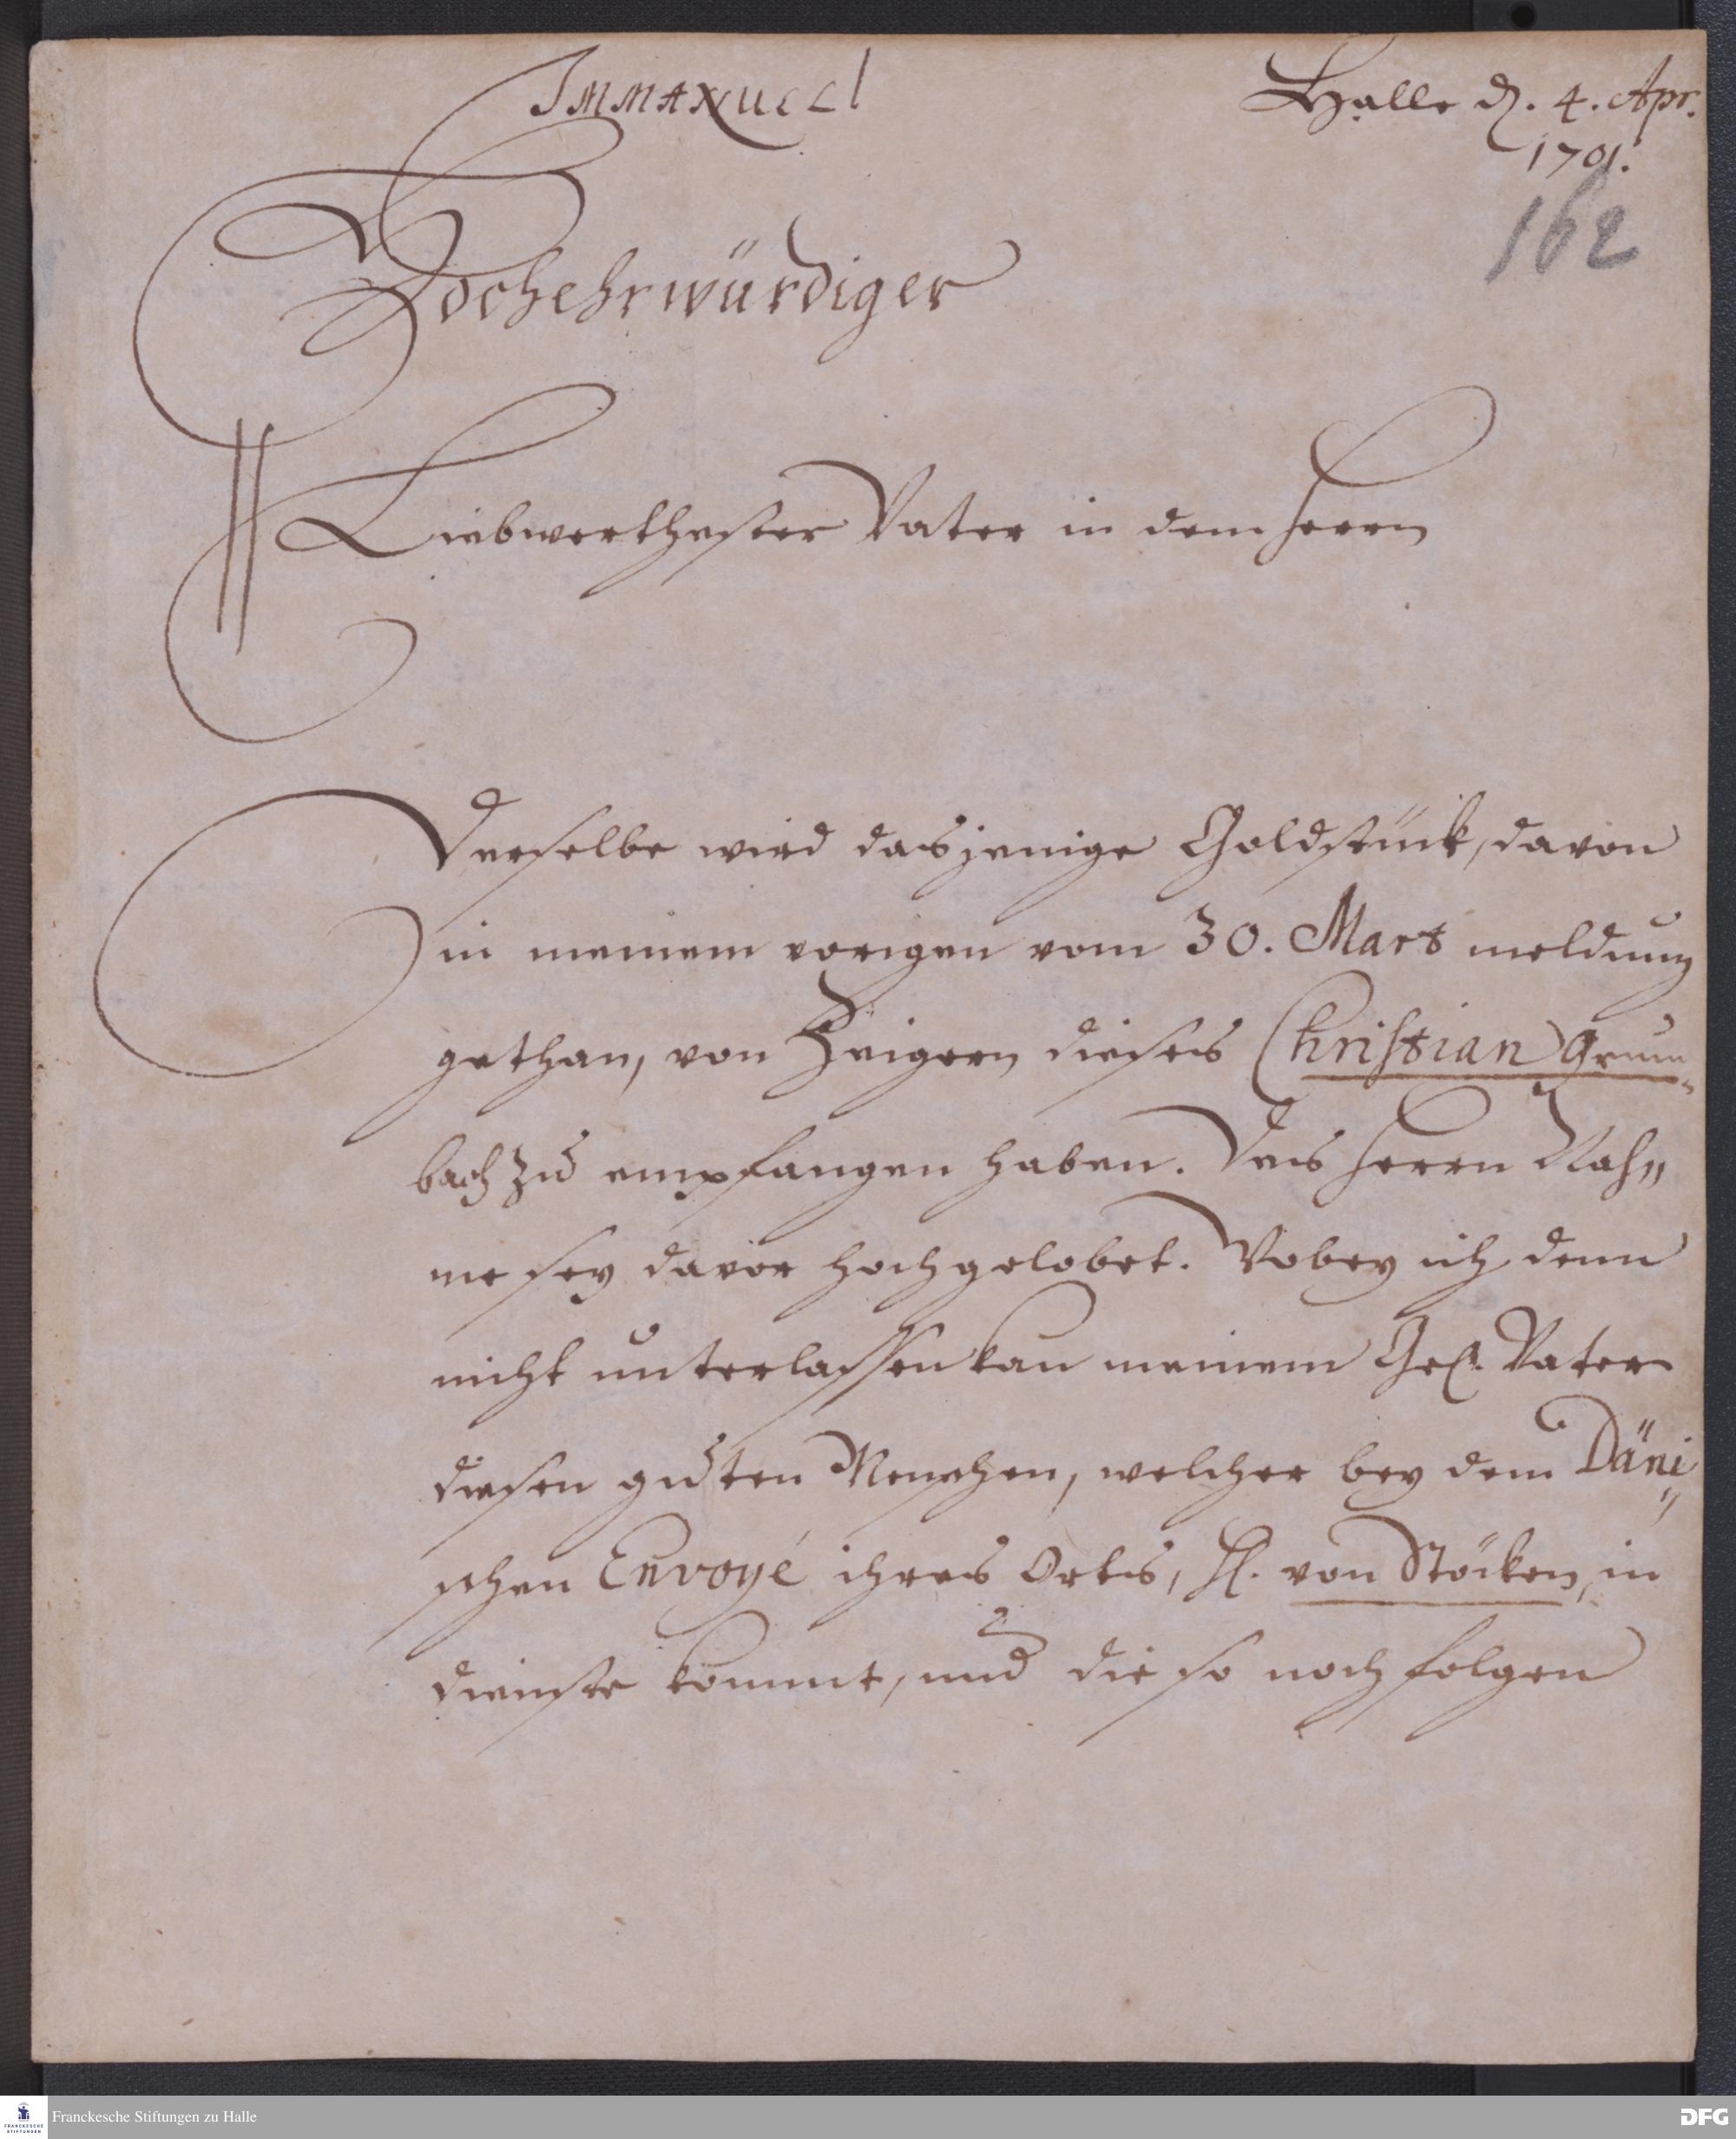 Immanuel
Halle d. 4. Apr.
1701.
162
Hochehrwürdiger
Liebwerthester Vater in dem Herrn
Derselbe wird dasjenige Goldstück, davon
in meinem vorigen vom 30. Mart meldung
gethan, von Zeigern dieses Christian Grum-
bach zu empfangen haben. Des Herrn Nah-
me sey davor hochgelobet. Wobey ich denn
nicht unterlassen kan meinem Gel. Vater
diesen guten Menschen, welcher bey dem Däni-
schen Envoyé ihres Orts, H. von Stöcken, in
dienste kommt, und die so noch folgen
FRANCKESCHE
STIFTUNGEN
Franckesche Stiftungen zu Halle
DFG